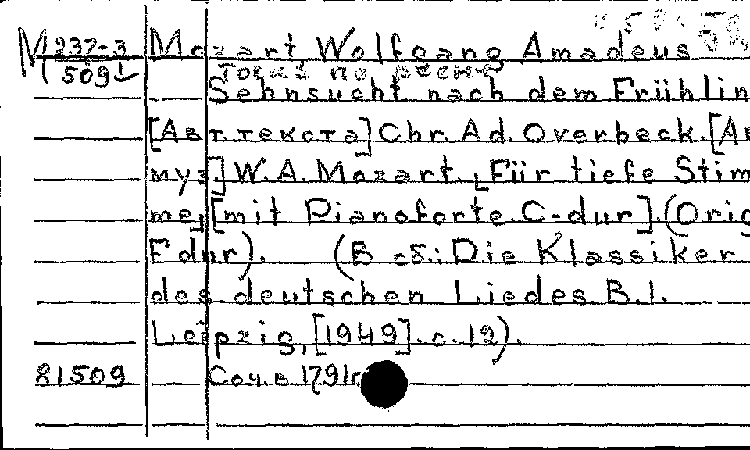 M 237-3 Mozart Wolfgang Amadeus
509
Sehnsucht nach dem Frühlin
[Авт. текста] Chr. Ad. Overbeck. [Ав
муз] W. A. Mozart. Für tiefe Stim
me, [mit Pianoforte. C-dur]. (Orig
Fdur). (В сб.: Die Klassiker
des deutschen Liedes B. I.
Leipzig, [1949]. с. 12).
81509 Соч. в 1791г